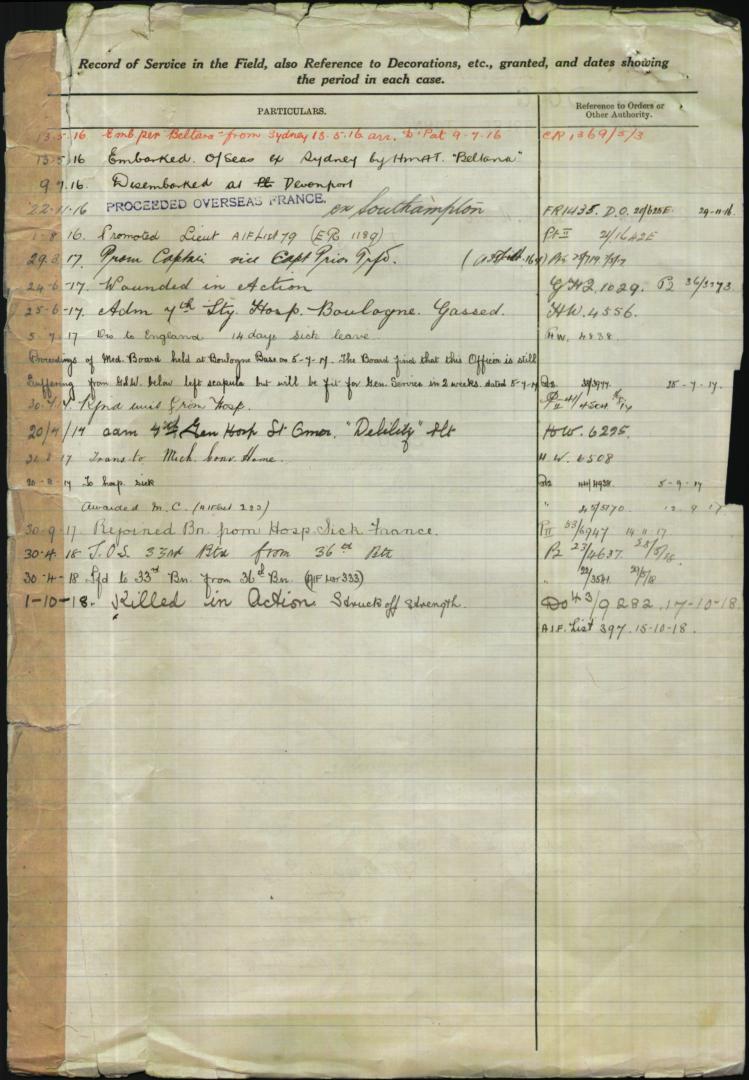 Record of Service in the Field, also Reference to Decorations, etc., granted, and dates showing
the period in each case.
PARTICULARS.
Reference to Orders or
Other Authority.
13-5-16 Emb per Beltana from Sydney 13.5.16 arr. D'Pat 9-7-16 CR 1369/5/3
13-5-16 Embarked O/Seas ex Sydney by HMAT. "Beltana"
9.7.16. Disembarked at Devonport
22-11-16 PROCEEDED OVERSEAS FRANCE. ex Southampton FR1435. D.O. 20/625E 29-11-16.
1-8 16. Promoted Lieut AIF List 79 (ER 1189) Pt II 2/1642E
29.3.17. Prom Captain vice Capt Prior
24-6-17. Wounded in Action GHQ 1029. P2 36/3373
25-6-17. Adm 7th Sty. Hosp. Boulogne. Gassed. H.W. 4556.
5-7-17 Dis to England 14 days sick leave. H.W. 4838.
Proceedings of Med. Board held at Boulogne Base on 5-7-17. The Board find that this Officer is still
Suffering from G.S.W. below left scapula but will be fit for Gen. Service in 2 weeks. dated 5-7-17 25-7-17.
30-7-17. Rjnd unit from Hosp. P II 41/4504
20/4/17 adm 4th Gen Hosp St Omer. "Debility" Slt H.W. 6225.
31-8-17 Trans to Mich. Conv. Home. H.W. 6508
20-8-17 To hosp. sick 44/4938. 5-9-17
Awarded M.C. (AIF List 223) " 45/5170. 12.9.17.
30-9-17. Rejoined Bn. from Hosp. Sick France. P II 53/6947 14-11-17
30-4-18 T.O.S. 33rd Btn from 36th Btn P2 23/4637. 28/5/18.
30-4-18 Tfd to 33rd Bn. from 36th Bn. (AIF List 333) " 22/3541. 29/5/18
1-10-18. Killed in Action. Struck off strength. Do 43/9282. 17-10-18.
A.I.F. List 397. 15-10-18.